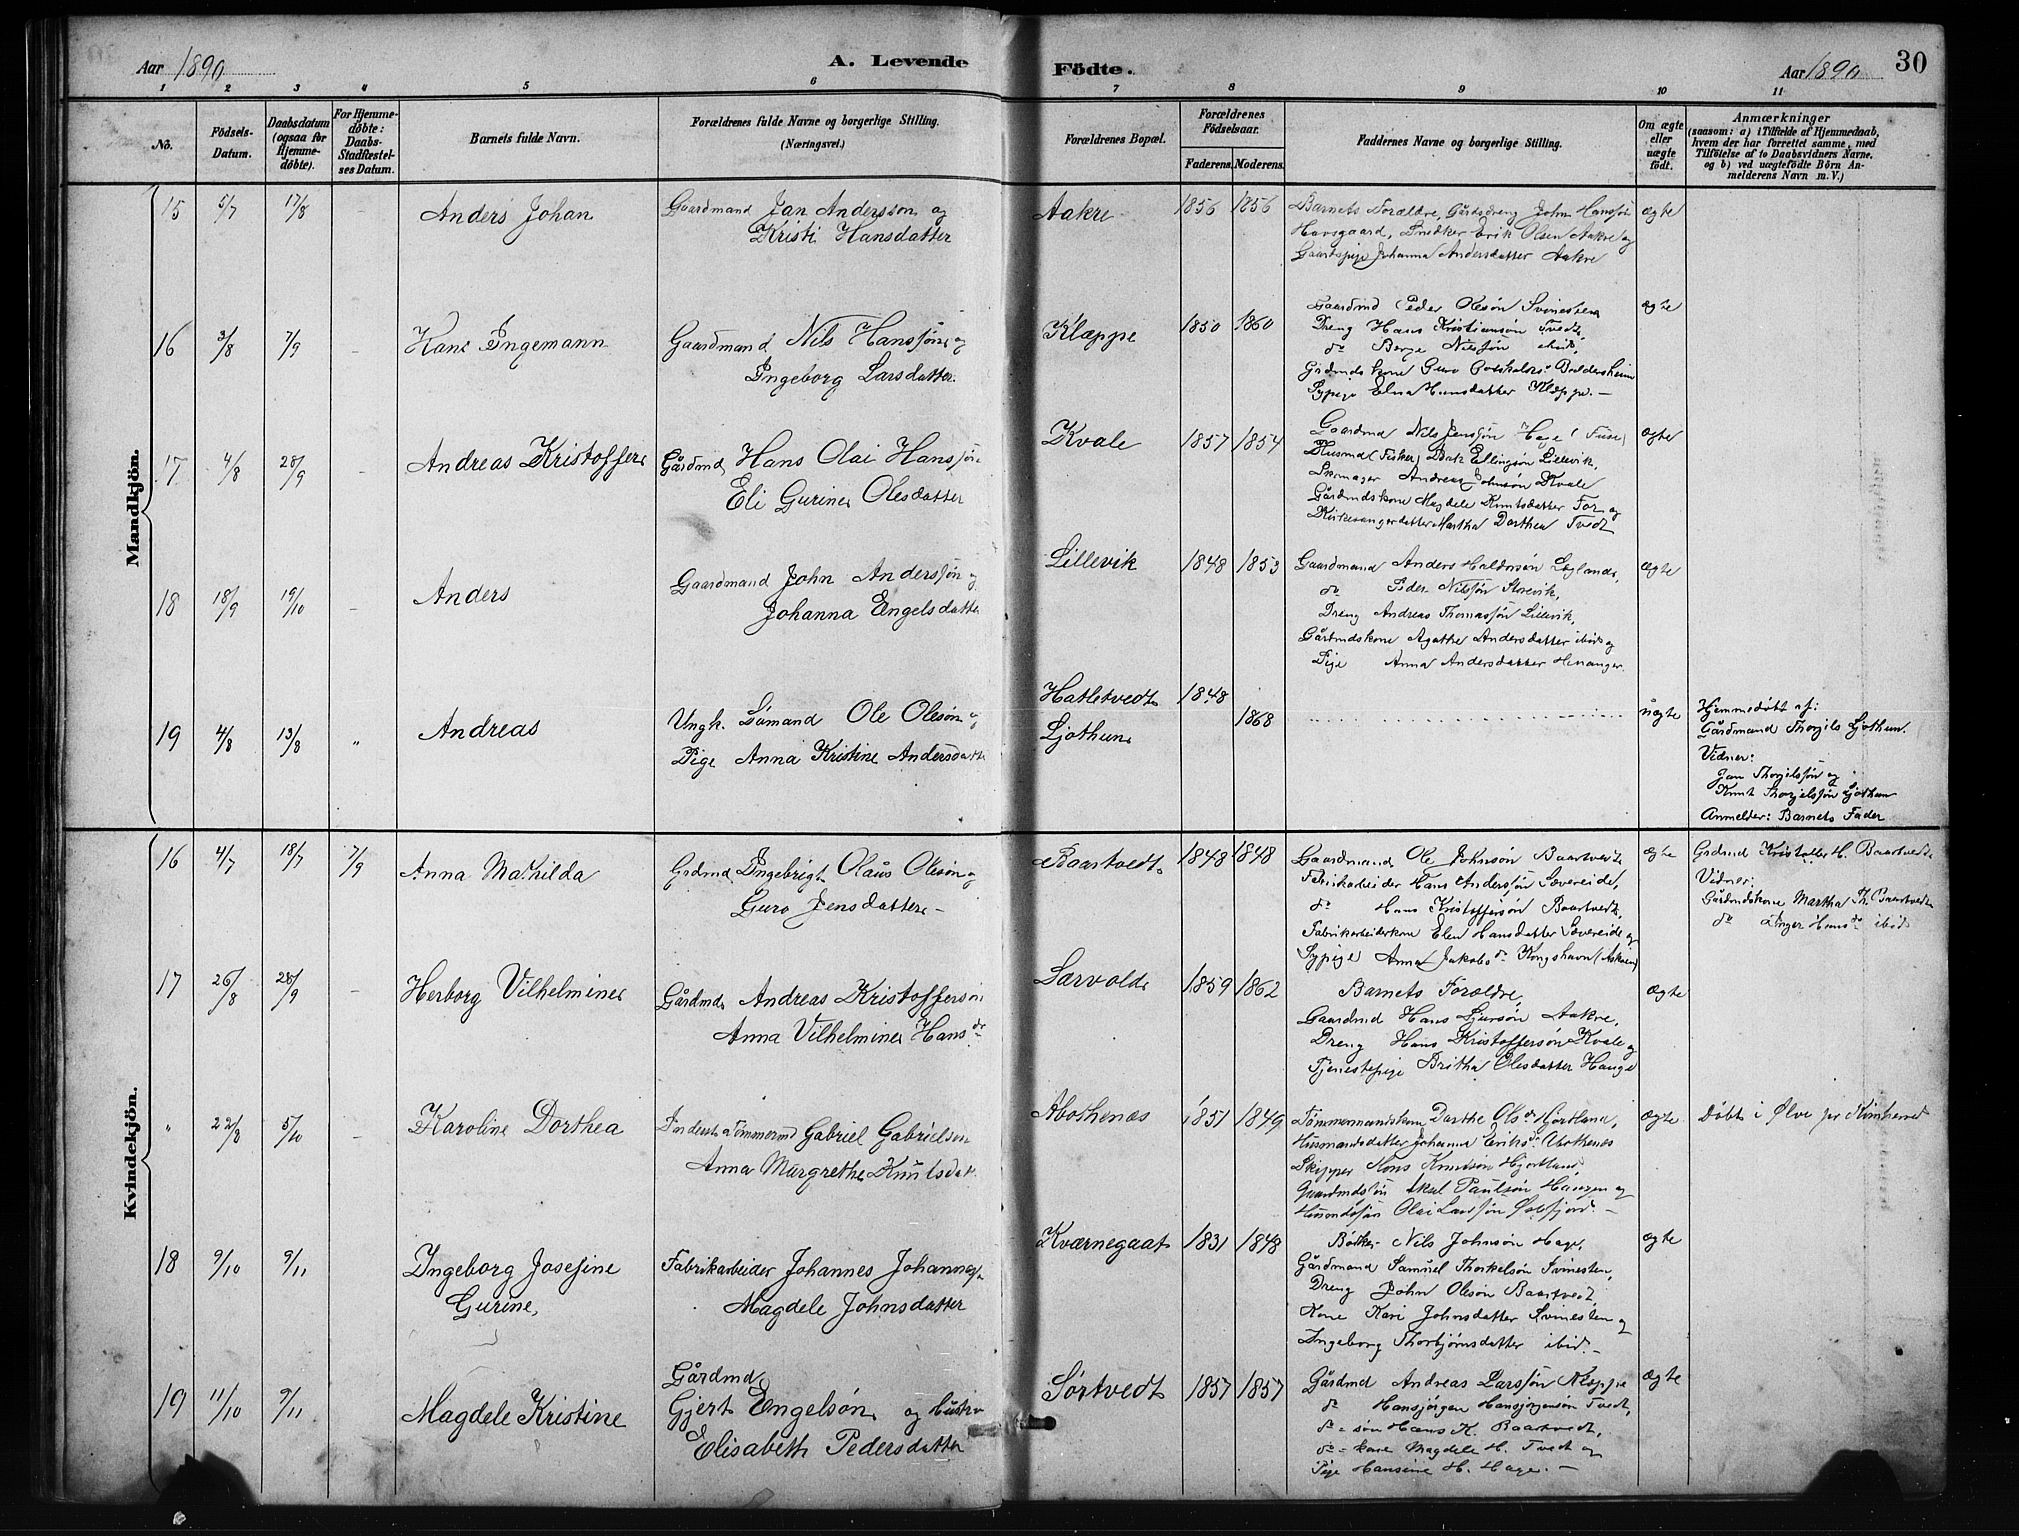 Aar 1890
A. Levende
Födte.
Aar 1890
30
1 2 3 4 5 6 7 8 9 10 11
No.
Födsels-Datum.
Daabsdatum (ogsaa for Hjemme-döbte).
For Hjemme-döbte: Daabs-Stadfæstel-ses Datum.
Barnets fulde Navn.
Forældrenes fulde Navne og borgerlige Stilling.
(Næringsvei.)
Forældrenes Bopæl.
Forældrenes Födselsaar.
Faderens. Moderens.
Faddernes Navne og borgerlige Stilling.
Om ægte eller uægte födt.
Anmærkninger
(saasom: a) i Tilfælde af Hjemmedaab,
hvem der har forrettet samme, med
Tilföielse af to Daabsvidners Navne,
og b) ved uægtefödte Börn An-
melderens Navn m. V.)
Mandkjön.
15 5/7 17/8 Anders Johan
Gaardmand Jan Anderssøn og
Kristi Hansdatter
Aakre 1856 1856
Barnets Forældre, Gårdsdreng John Hanssøn
Havsgaard, Snedker Erik Olsen Aakre og
Gaardspige Johanna Andersdatter Aakre
ægte
16 3/8 7/9 - Hans Ingemann
Gaardmand Nils Hanssøn og
Ingeborg Larsdatter.
Klæppe 1850 1860
Gaardmd Peder Olesøn Svinesten
Dreng Hans Kristiansøn Tvedt,
do Berge Nilssøn ibid,
Grdmdskone Guro Boldersheim
Sypige Elna Hansdatter Klæppe. -
ægte
17 4/8 28/9 - Andreas Kristoffer
Gårdmd Hans Olai Hanssøn
Eli Gurine Olesdatter
Kvale 1857 1854
Gaardmd Nils Jenssøn Hage (Fuse)
Husmd (Fisker) Ellingsøn Lillevik,
Skomager Andreas Johnsøn Kvale
Gårdmdskone Magdele Knutsdatter For og
Kirkesangerdatter Martha Dorthea Tvedt
ægte
18 18/9 19/10 - Anders
Gaardmand John Anderssøn og
Johanna Engelsdatter
Lillevik 1848 1853
Gaardmand Anders Haldorsøn
do Peder Nilssøn Storevik,
Dreng Andreas Thomassøn Lillevik,
Gårdmdskone Agathe Andersdatter ibid og
Pige Anna Andersdatter Hevanger.
ægte
19 4/8 13/8 " Andreas
Ungk. Sømand Ole Olesøn og
Pige Anna Kristine Andersdatter
Hatletvedt 1848
Ljothun 1868
uægte
Hjemmedøbt af:
Gårdmand Thorgils Ljothun.
Vidner:
Jan Thorgilssøn og
Knut Thorgilssøn Ljothun
Anmelder: Barnets Fader
Kvindekjön.
16 4/7 18/7 7/9 Anna Mathilda
Grdmd Ingebrigt Olaus Olesøn og
Guro Jensdatter -
Baartvedt 1848 1848
Gaardmand Ole Johnsøn Baartvedt
Fabrikarbeider Hans Anderssøn Sævereide,
do Hans Kristoffersøn Baartvedt,
Fabrikarbeiderkone Elen Hansdatter Sævereide og
Sypige Anna Jakobsdr Kongshavn (Askøen)
ægte
Grdmd Kristoffer H. Baartvedt
Vidner:
Gårdmdskone Martha Th. Baartvedt
do Inger Hansdr ibid
17 26/8 28/9 - Herborg Vilhelmine
Gårdmd Andreas Kristoffersøn
Anna Vilhelmine Hansdr
Sarvold 1859 1862
Barnets Forældre,
Gaardmd Hans Sjursøn Aakre,
Dreng Hans Kristoffersøn Kvale og
Tjenestepige Britha Olesdatter Hauge
ægte
" 22/8 5/10 Karoline Dorthea
Inderst Tømmermd Gabriel Gabrielsen
Anna Margrethe Knutsdat.
Abothenæs 1851 1849
Tømmermandskone Dorthe Olsdr Hjortland,
Husmandsdatter Johanna Eriksdr Abothenæs
Skipper Mons Knutsøn Hjortland
Gaardmdssøn Aksel Paulsøn Haugen og
Husmdssøn Olai Larssøn Ølfsfjord. -
ægte
Døbt i Ølve pr Kvinherred
18 9/10 9/11 Ingeborg Josefine
Gurine,
Fabrikarbeider Johannes Johannes
Magdele Johnsdatter
Kværnegaat 1831 1848
Bøkker Nils Johnsøn Hage,
Gårdmand Samuel Thorkelsøn Svinesten,
Dreng John Olesøn Baartvedt,
Kone Kari Johnsdatter Svinesten og
Ingeborg Thorbjørnsdatter ibid. -
ægte
19 11/10 9/11 Magdele Kristine
Gårdmd
Gjert Engelsøn og Hustru
Elisabeth Pedersdatter
Sørtvedt 1857 1857
Gårdmd Andreas Larssøn Klæppe
do Hansjørgen Hansjørgensøn Tvedt,
do - søn Hans K. Baartvedt,
do - kone Magdele H. Tvedt og
Pige Hansine H. Hage. -
ægte